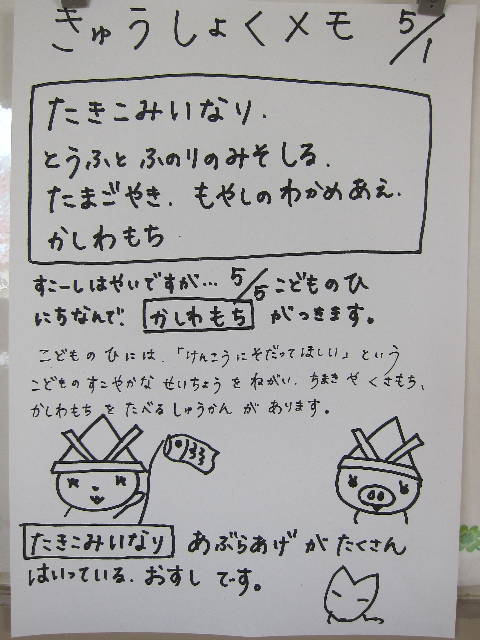 きゅうしょくメモ 5/1
たきこみいなり.
とうふと ふのりのみそしる.
たまごやき. もやしのわかめあえ.
かしわもち
すこーしはやいですが… 5/5 こどものひ
にちなんで、 かしわもち がつきます。
こどものひには、「けんこうにそだってほしい」という
こどものすこやかな せいちょう を ねがい、ちまき や くさもち、
かしわもち を たべる しゅうかん が あります。
たきこみいなり あぶらあげ が たくさん
はいっている、おすし です。